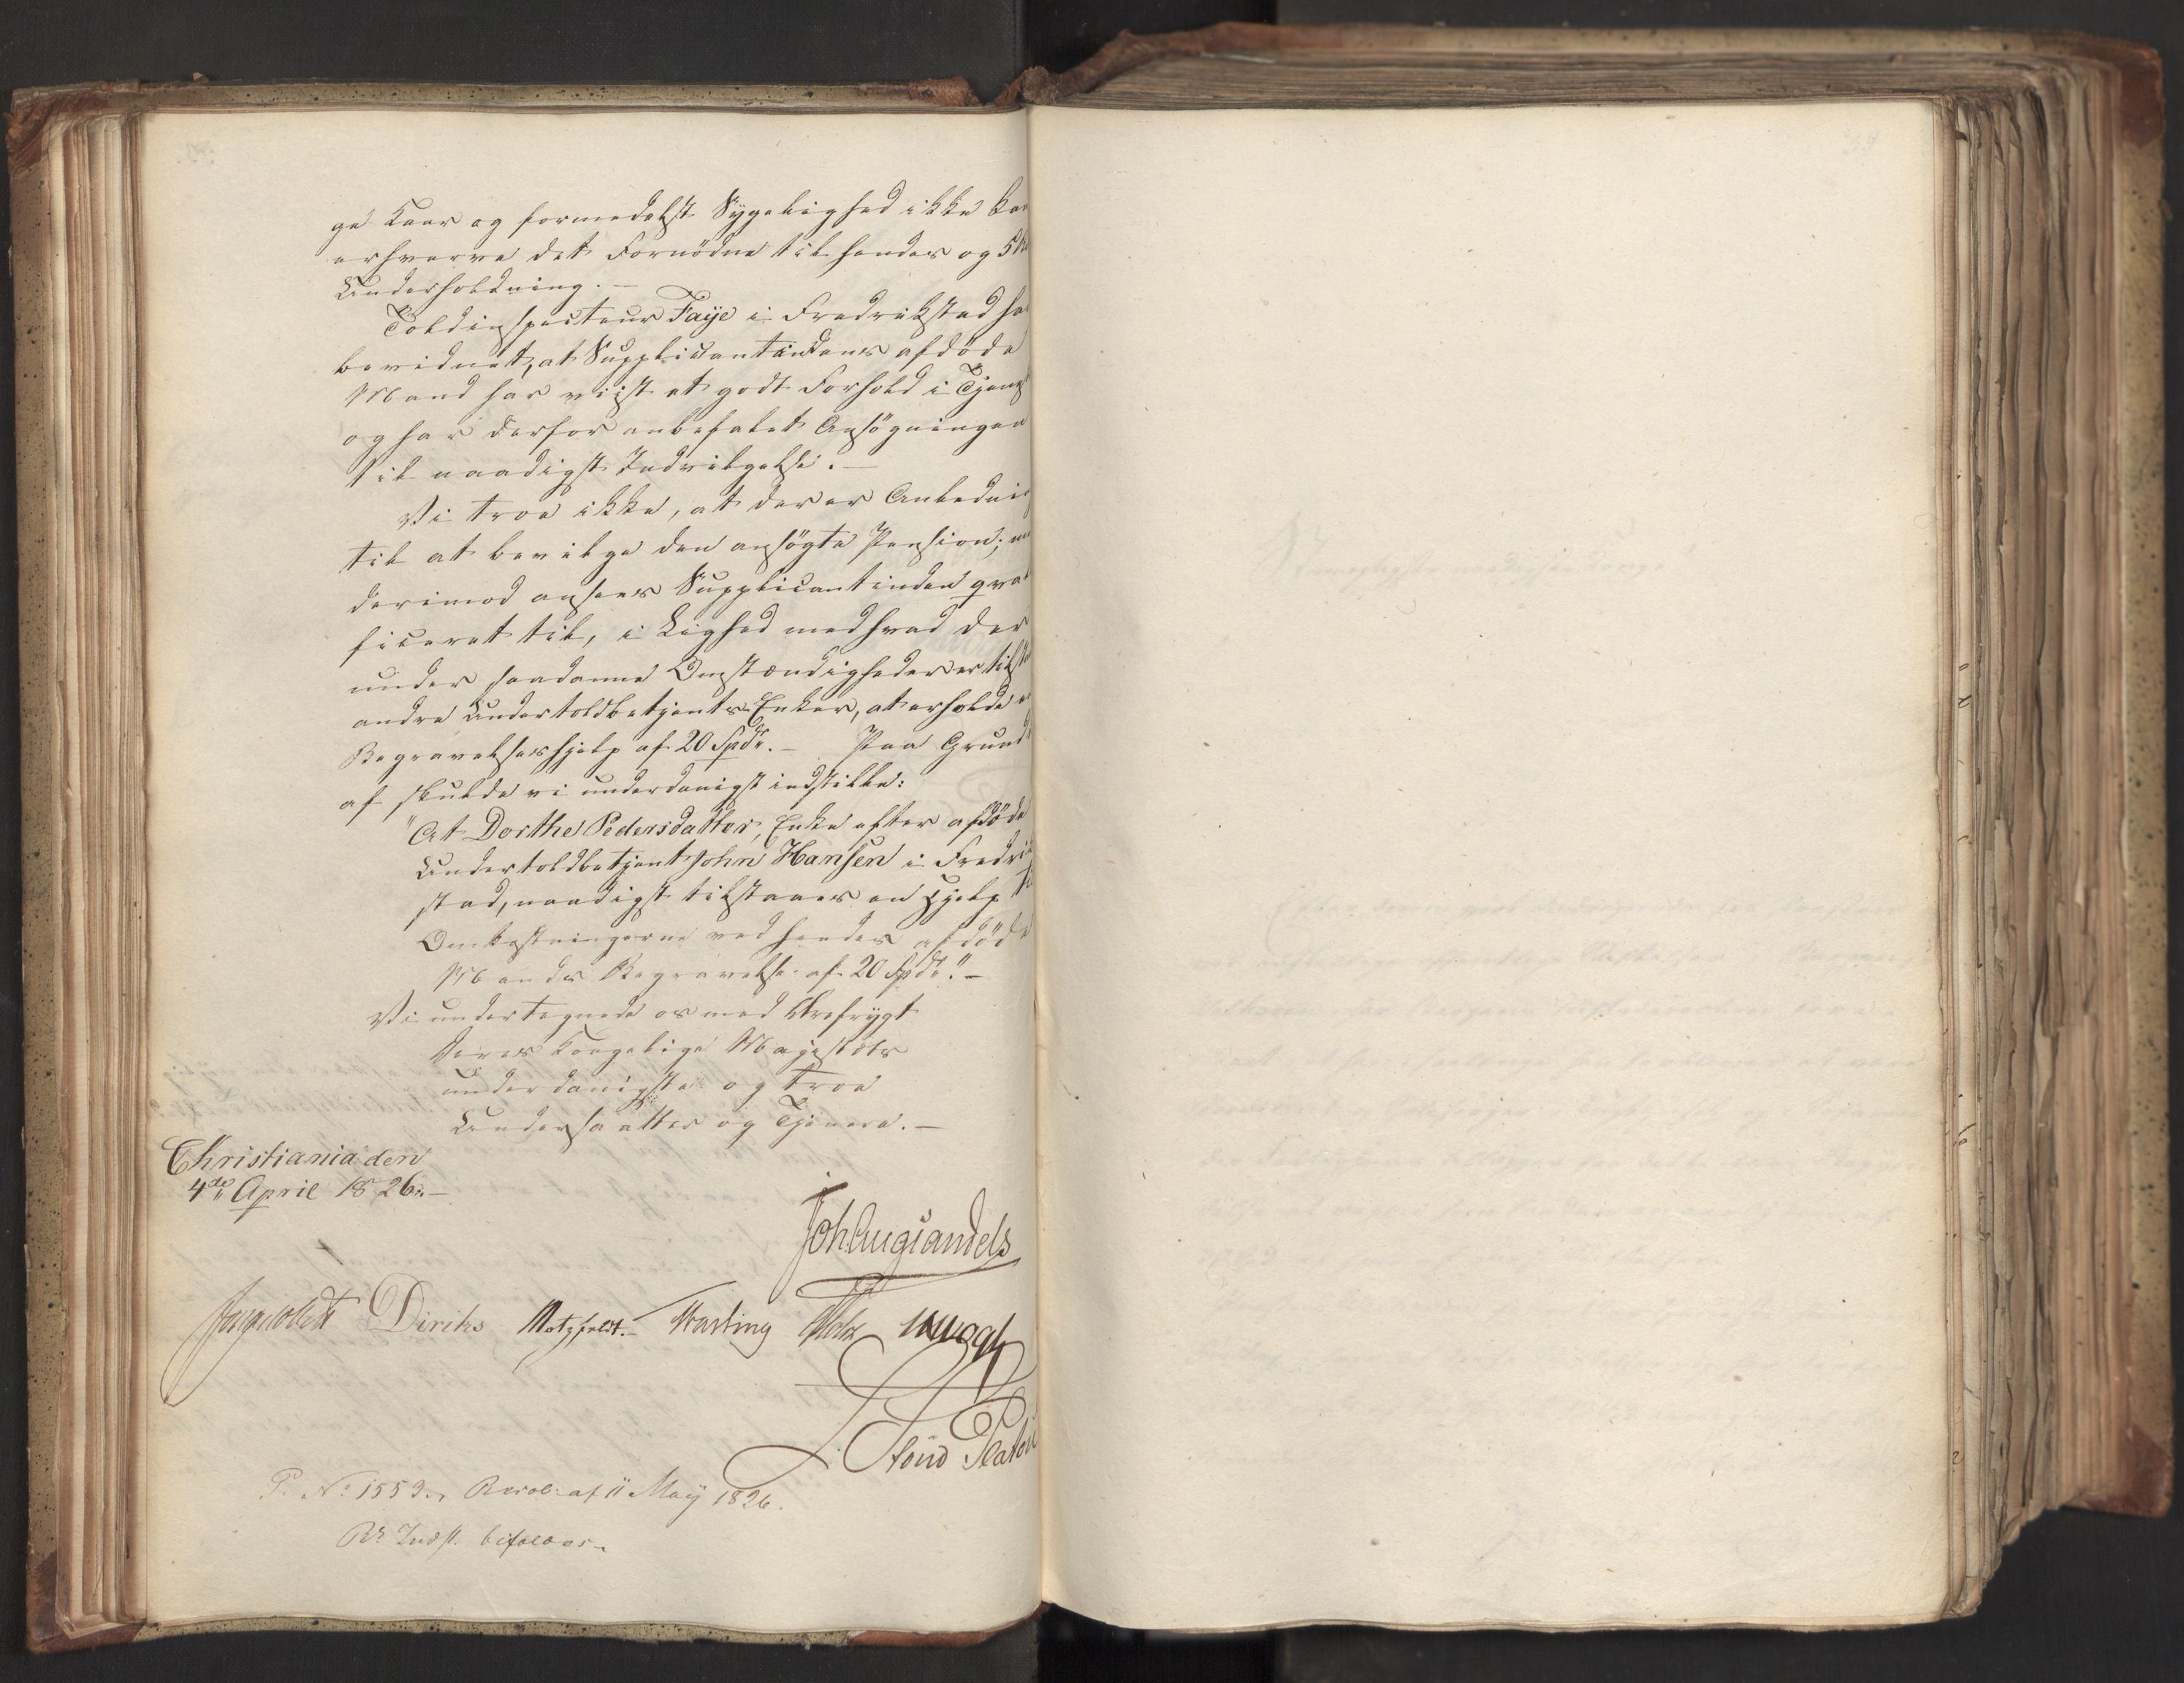 ge Kaar og formedelst Sygelighed ikke kan
erhverve det Fornödne til hendes og 5 
Underholdning. —
Toldinspecteur Faÿe i Fredrikstad ha
bevidnet, at Supplicantindens afdöde
Mand har viist et godt Forhold i Tjenest
og har derfor anbefalet Ansögningen
til naadigst Indvilgelse. —
Vi troe ikke, at der er Anledning
til at bevilge den ansögte Pension;
derimod ansees Supplicantinden qvali
ficeret til, i Lighed med hvad der
under saadanne Omstændigheder er tilst
andre Undertoldbetjents Enker, at erholde e
Begravelseshjelp af 20 Spdr. — Paa Grund
af skulde vi underdanigst indstille:
"At Dorthe Pedersdatter, Enke efter afdöde
Undertoldbetjent John Hansen i Fredrik
stad, naadigst tilstaaes en Hjelp til
Omkostningerne ved hendes afdöde
Mands Begravelse af 20 Spdr." —
Vi undertegnede os med Ærefrygt
Deres Kongelige Majestæts
underdanigste og troe
Undersaatter og Tjenere. —
Christiania den
4de April 1826. —
Joh. Aug Sandels
Diriks Motzfeldt. Fasting Holst Krogh
P. No 1559. Resol: af 11 Maÿ 1826.
Rs Indst. bifaldes.